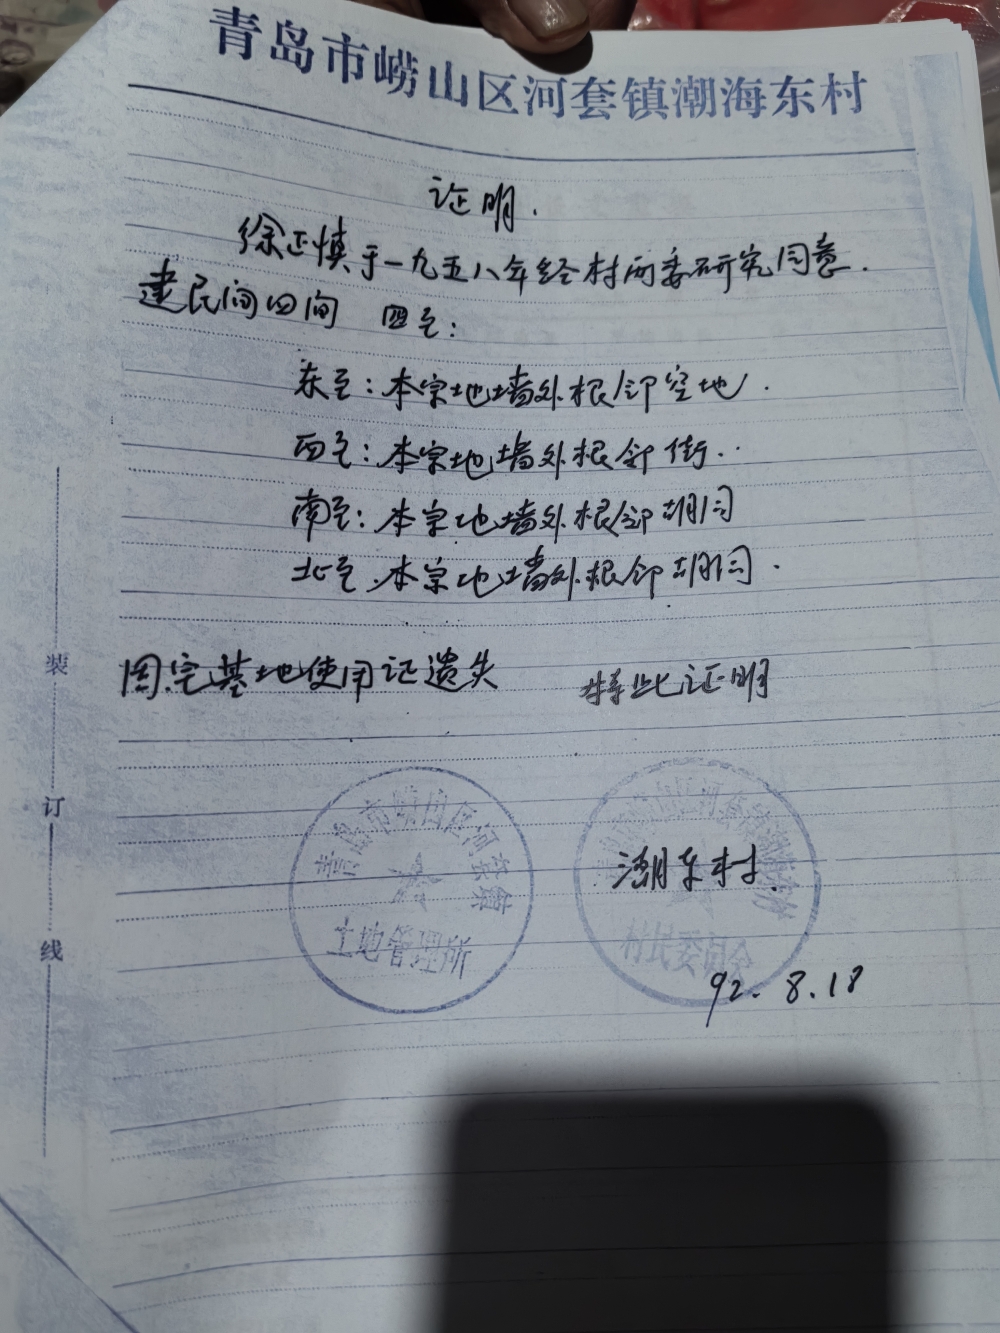 青岛市崂山区河套镇潮海东村
证明.
徐正慎于一九五八年经村两委研究同意.
建民间四间 四至:
东至:本宗地墙外根邻空地.
西至:本宗地墙外根邻街..
南至:本宗地墙外根邻胡同
北至.本宗地墙外根邻胡同.
因宅基地使用证遗失 特此证明
装
订
线
青岛市崂山区河套镇
土地管理所
青岛市崂山区河套镇潮海东村
村民委员会
潮东村.
92.8.18